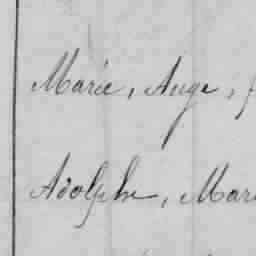 Marie, Ange,
Adolphe, Mar